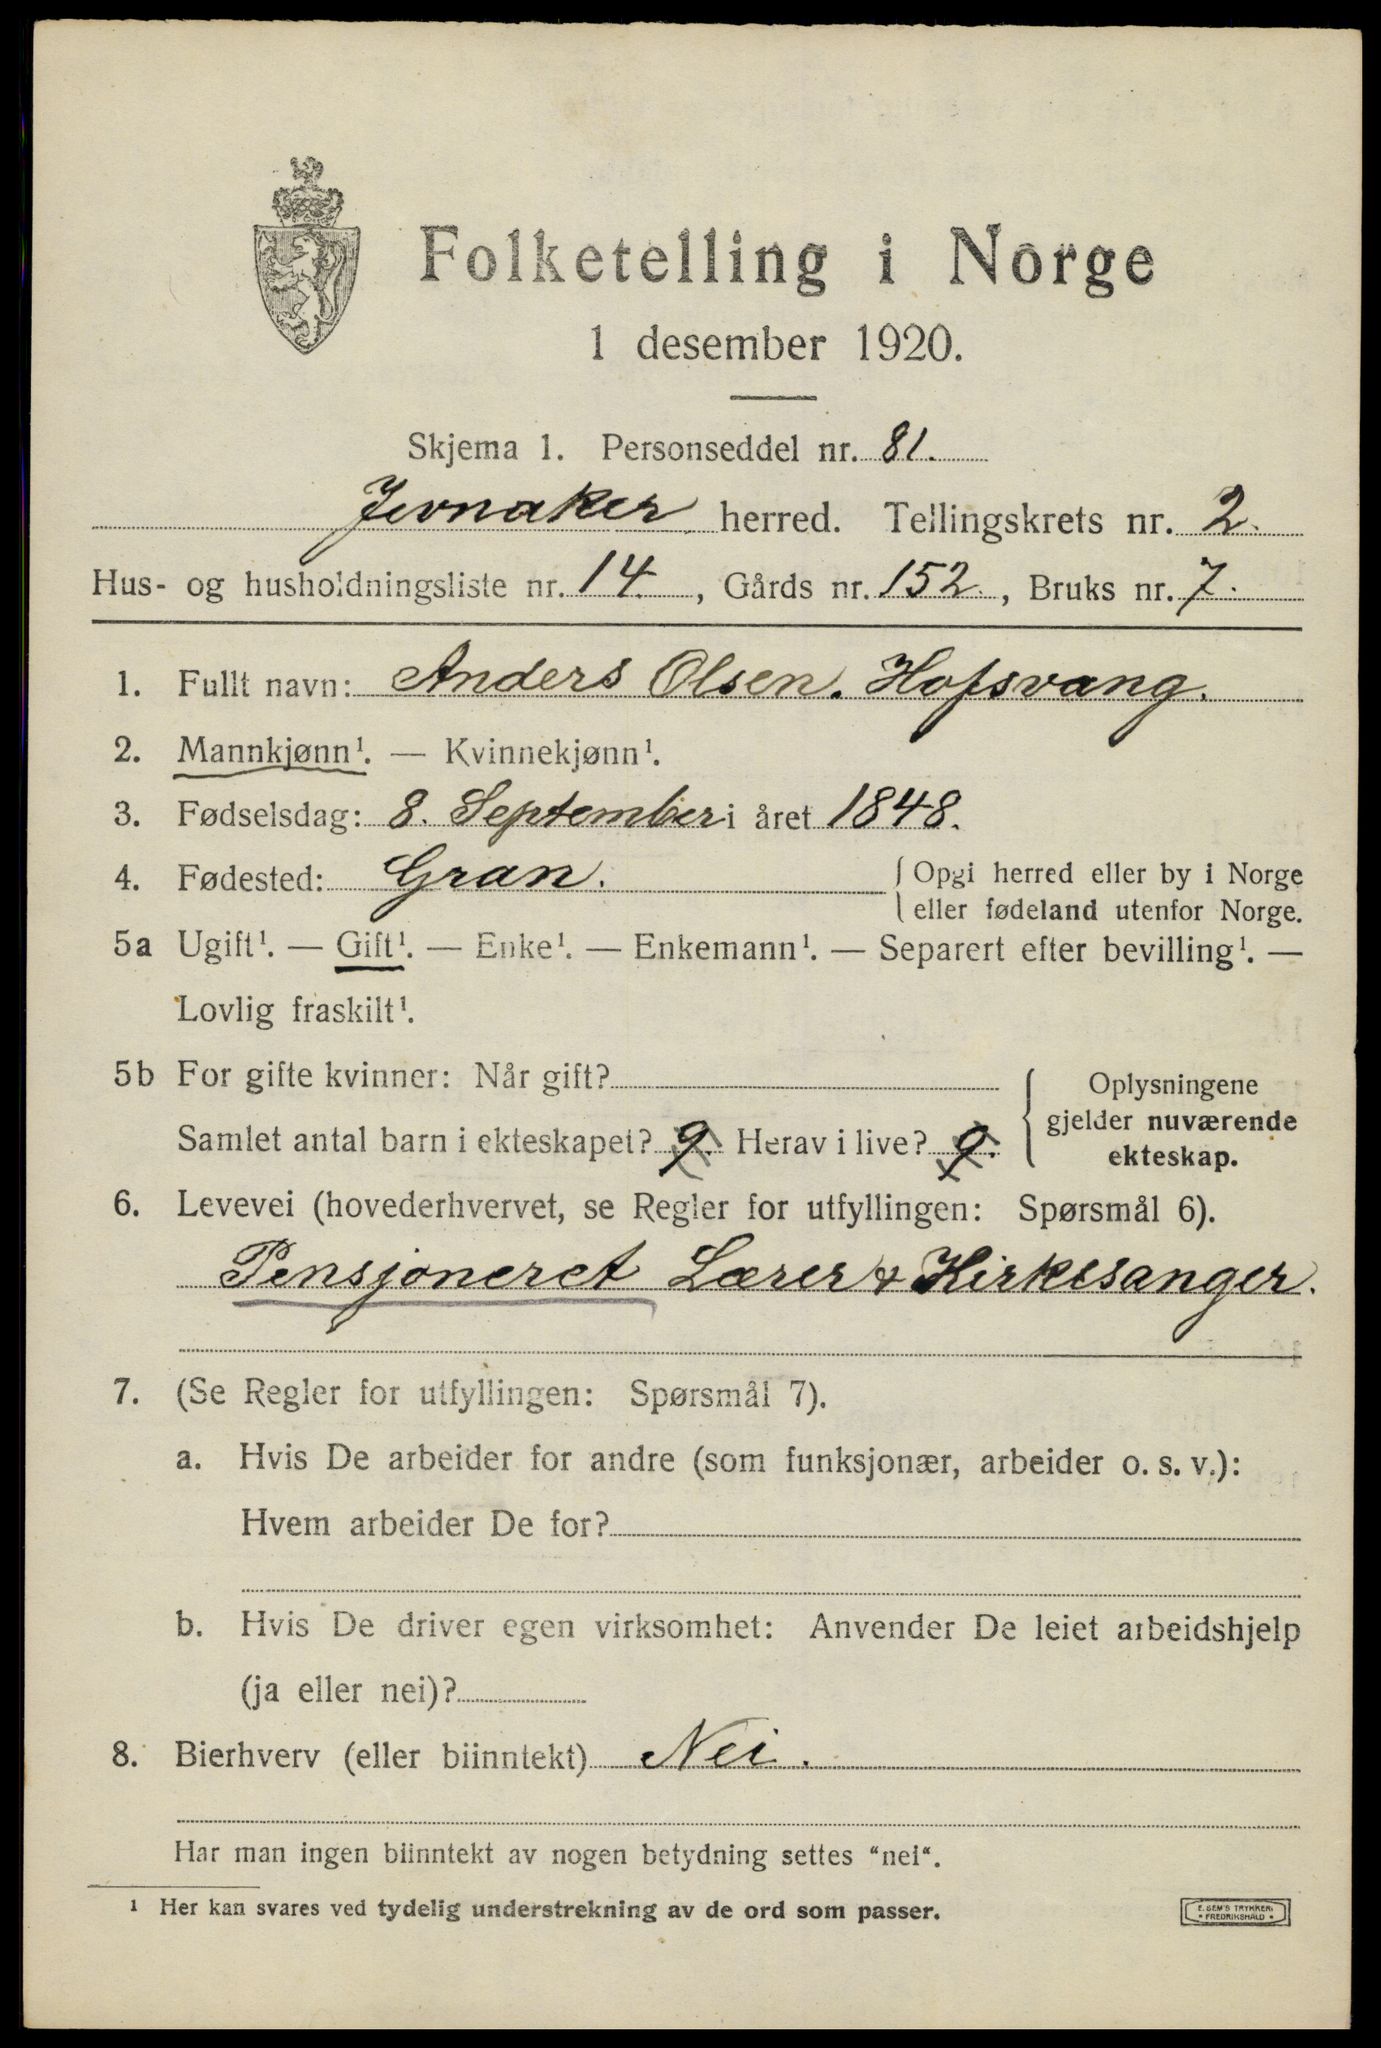 Folketelling i Norge
1 desember 1920.
Skjema 1. Personseddel nr. 81.
Jevnaker herred. Tellingskrets nr. 2.
Hus- og husholdningsliste nr. 14., Gårds nr. 152., Bruks nr. 7.
1. Fullt navn: Anders Olsen. Hofsvang.
2. Mannkjønn¹. — Kvinnekjønn¹.
3. Fødselsdag: 8. September i året 1848.
4. Fødested: Gran. { Opgi herred eller by i Norge
eller fødeland utenfor Norge.
5a Ugift¹. — Gift¹. — Enke¹. — Enkemann¹. — Separert efter bevilling¹. —
Lovlig fraskilt¹.
5b For gifte kvinner: Når gift? { Oplysningene
gjelder nuværende
Samlet antal barn i ekteskapet? 9. Herav i live? 9.
ekteskap.
6. Levevei (hovederhvervet, se Regler for utfyllingen: Spørsmål 6).
Pensjoneret Lærer & Kirkesanger.
7. (Se Regler for utfyllingen: Spørsmål 7).
a. Hvis De arbeider for andre (som funksjonær, arbeider o. s. v.):
Hvem arbeider De for?
b. Hvis De driver egen virksomhet: Anvender De leiet arbeidshjelp
(ja eller nei)?
8. Bierhverv (eller biinntekt) Nei.
Har man ingen biinntekt av nogen betydning settes "nei".
¹ Her kan svares ved tydelig understrekning av de ord som passer.
E. SEM'S TRYKKERI
• FREDRIKSHALD •